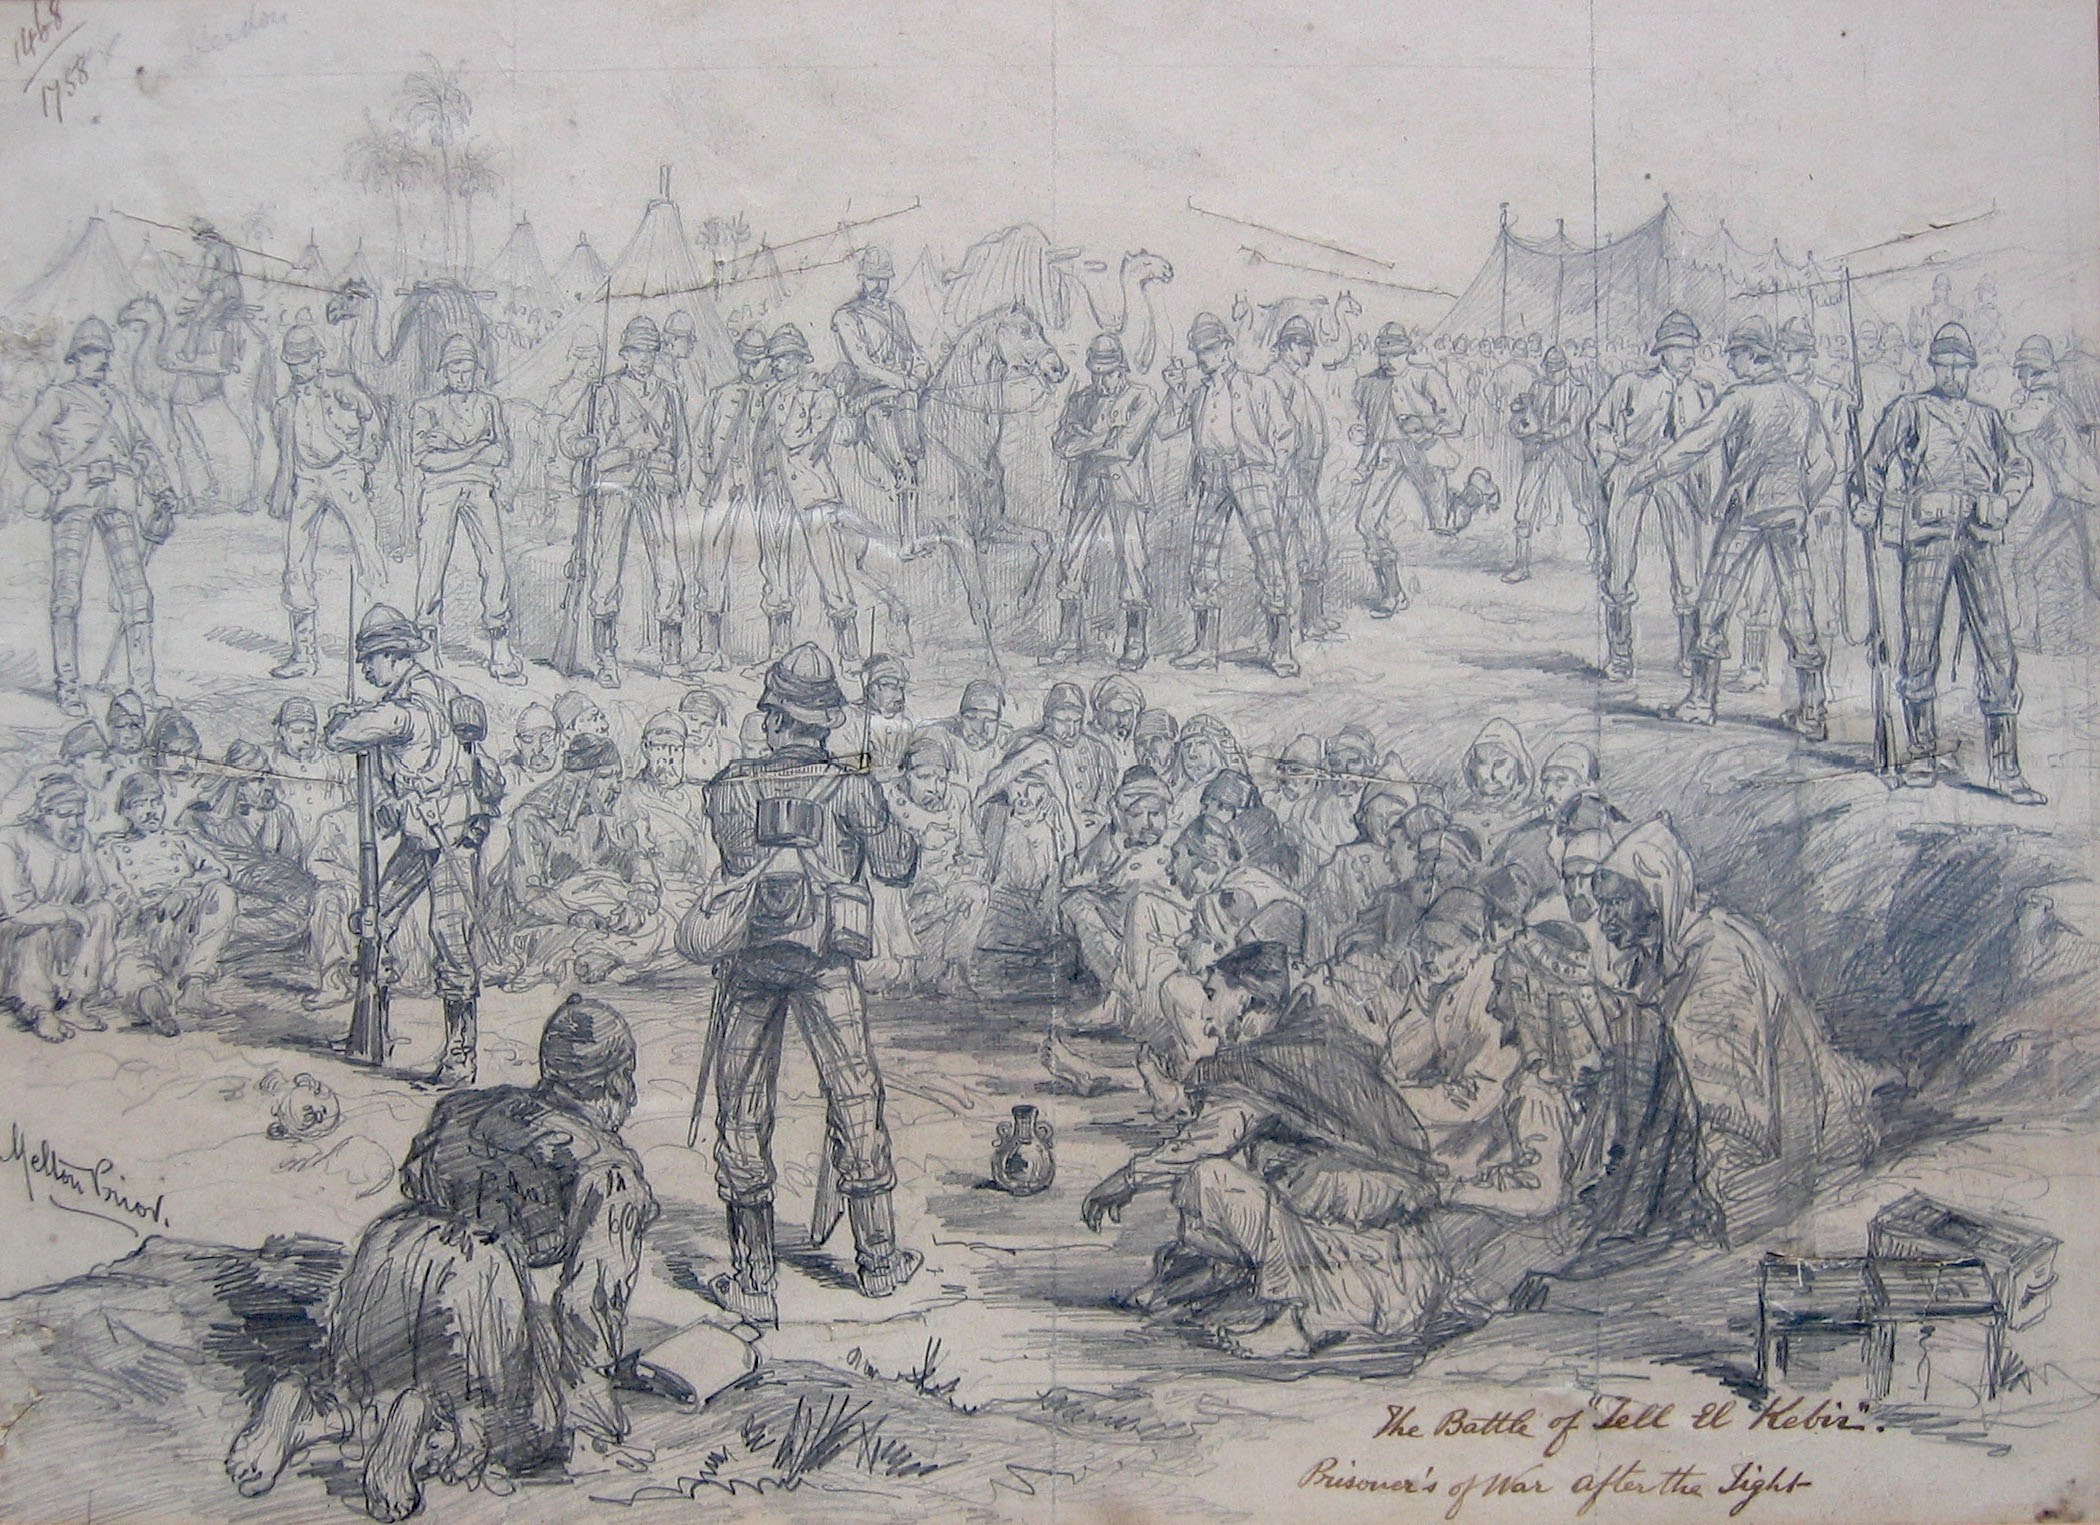 1468
1758
Melton Prior.
The Battle of "Tell El Kebir".
Prisoner's of War after the Fight